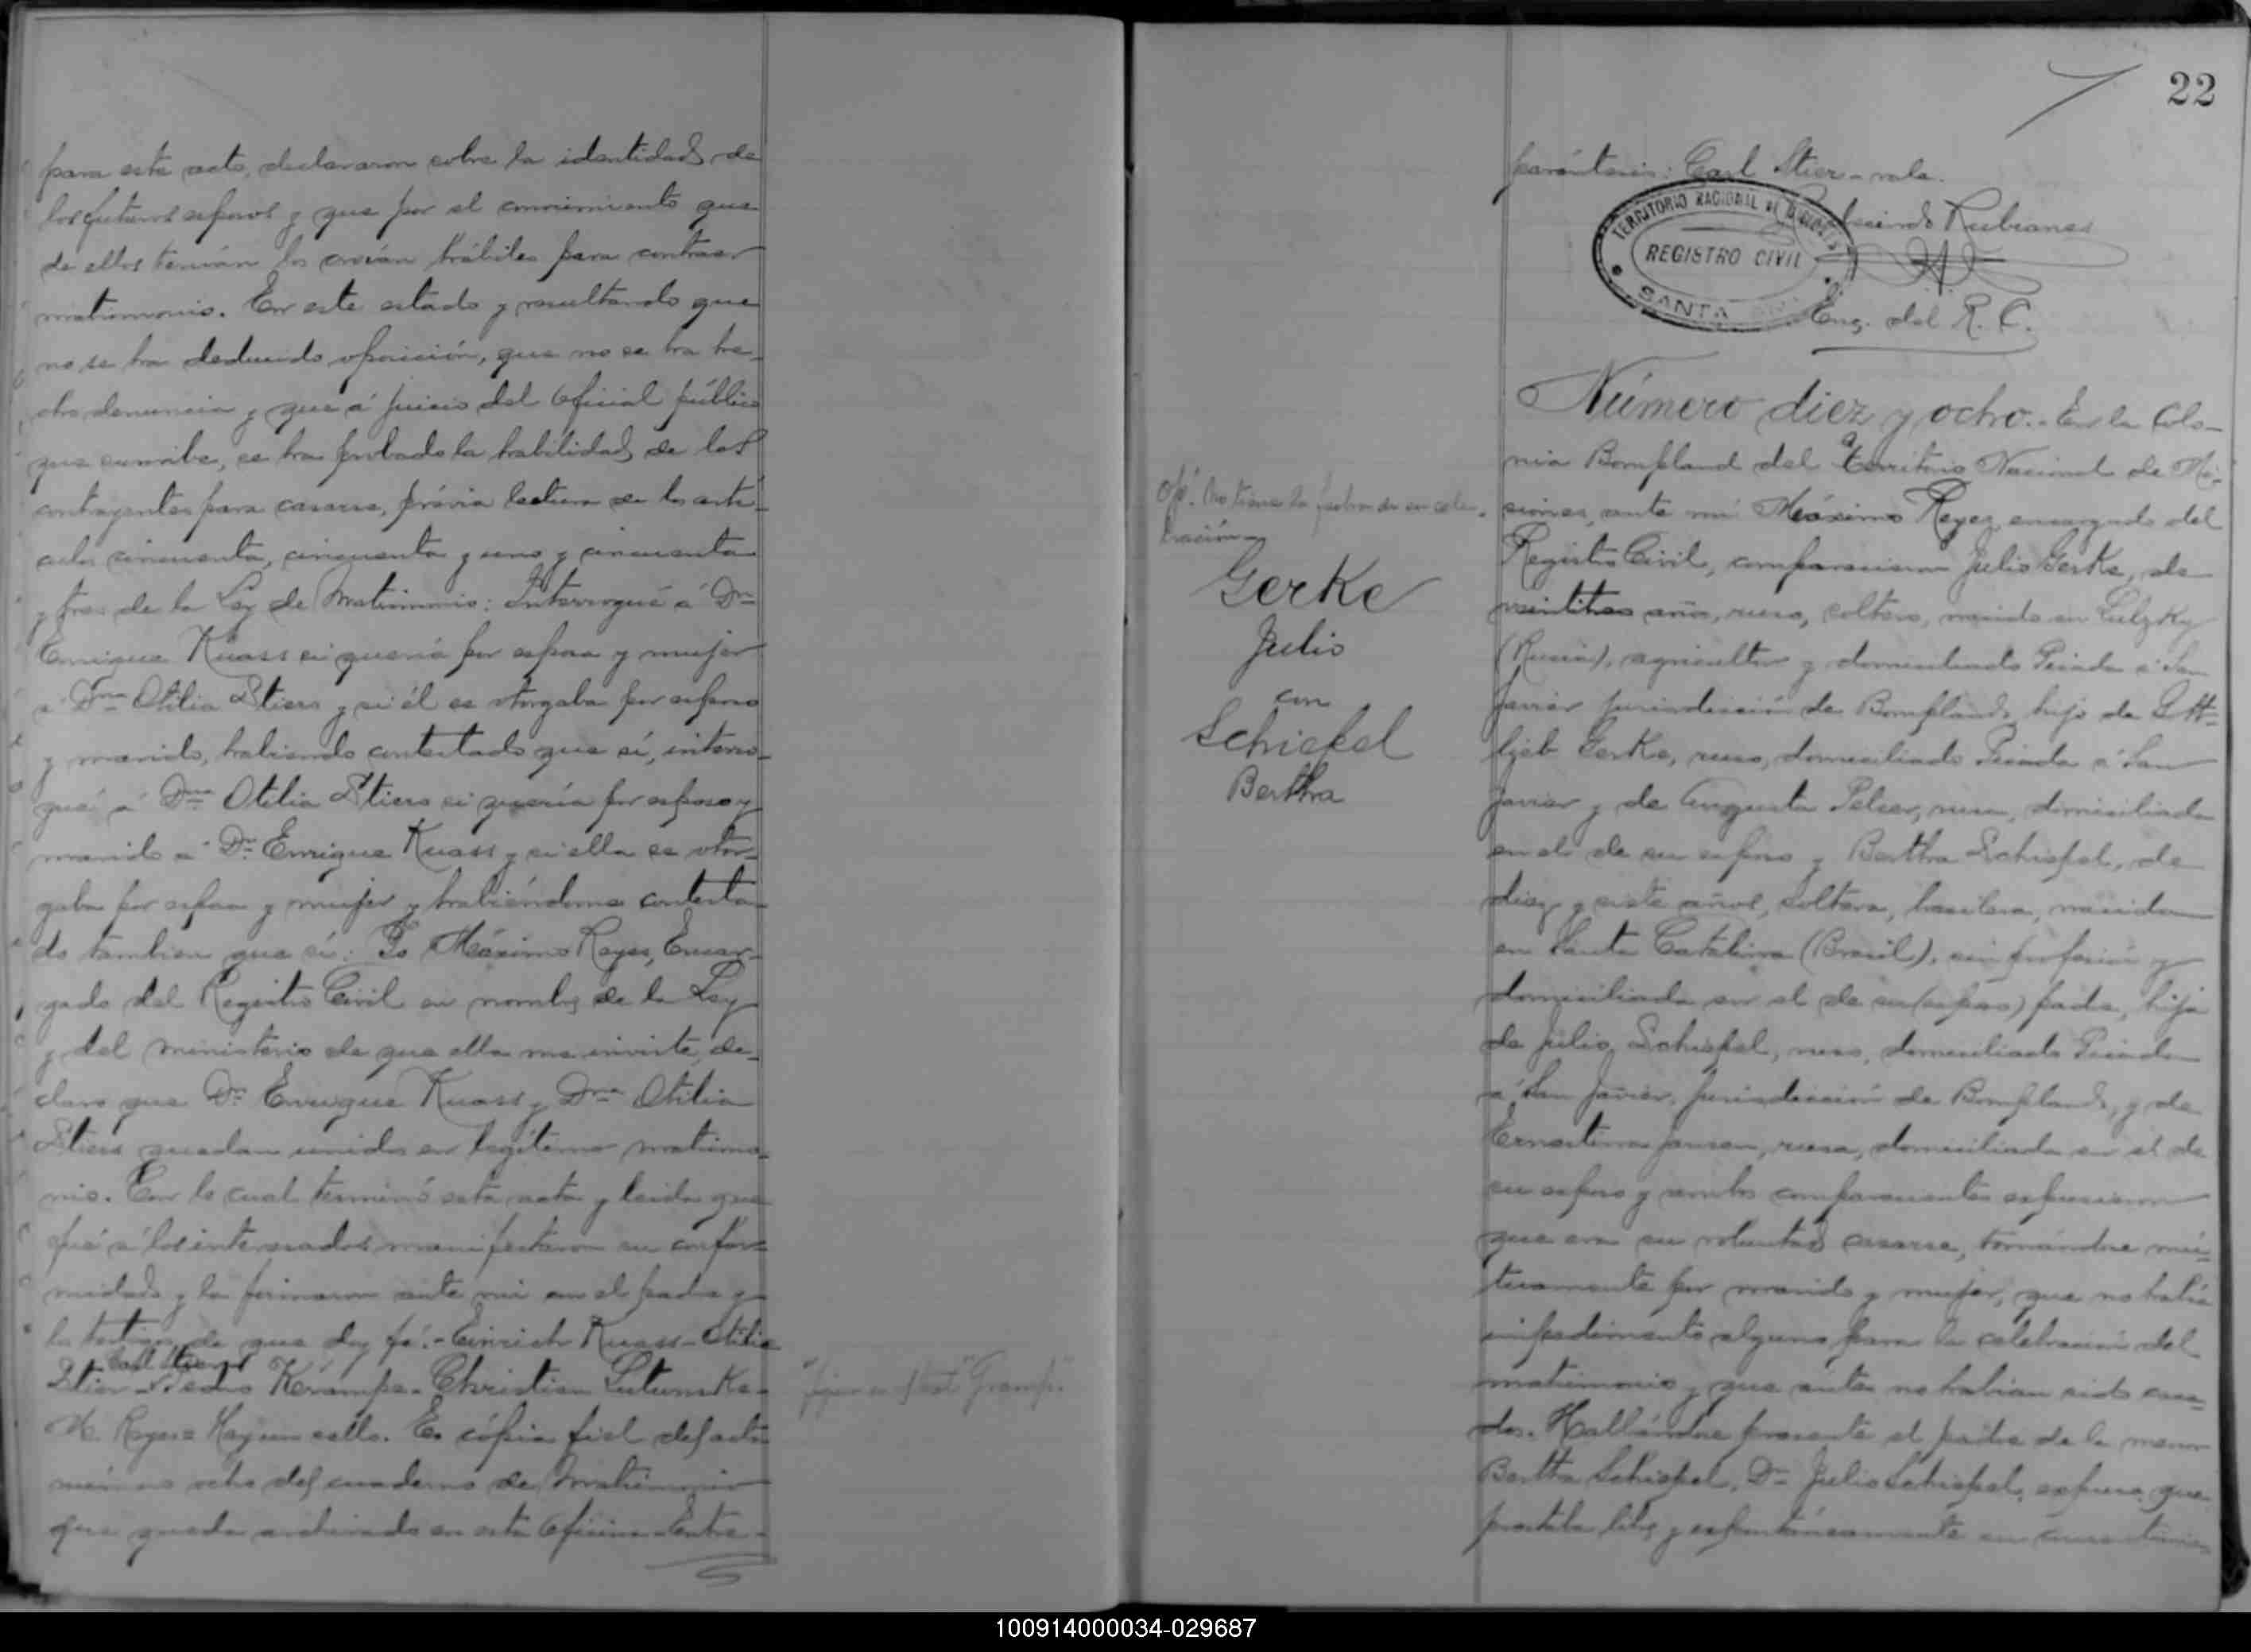 para este acto, declararon sobre la identidad de
los futuros esposos y que por el conocimiento que
de ellos tenían los creían hábiles para contraer
matrimonio. En este estado y resultando que
no se ha deducido oposición, que no se ha he-
cho denuncia y que á juicio del Oficial público
que suscribe, se ha probado la habilidad de los
contrayentes para casarse, prévia lectura de los artí-
culos cincuenta, cincuenta y uno y cincuenta
y tres de la Ley de Matrimonio: Interrogué á Dn
Enrique Kuass si quería por esposa y mujer
á Dña Otilia Stiers y si él se otorgaba por esposo
y marido, habiendo contestado que sí, interro-
gué á Dña Otilia Stiers si quería por esposo y
marido á Dn Enrique Kuass y si ella se otor-
gaba por esposa y mujer y habiéndome contesta-
do tambien que sí: Yo Máximo Reyes, Encar-
gado del Registro Civil en nombre de la Ley
y del ministerio de que ella me inviste, de-
claro que Dn Enrique Kuass y Dña Otilia
Stiers quedan unidos en legítimo matrimo-
nio. Con lo cual terminó esta acta y leida que
fué á los interesados manifestaron su confor-
midad y la firmaron ante mi con el padre y
los testigos de que doy fé.- Einrich Kuass - Otilia
Carl Stier
Stier - Pedro Krampe - Christian
M. Reyes = Hay un sello. Es cópia fiel del acta
número ocho del cuaderno de Matrimonio
que queda archivado en esta Oficina - Entre-
22
paréntesis: Carl Stier - vale.
Rubianes
TERRITORIO NACIONAL DE MISIONES
REGISTRO CIVIL
SANTA ANA
Enc. del R. C.
Número diez y ocho.- En la Colo-
nia Bompland del Territorio Nacional de Mi-
siones, ante mi Máximo Reyes encargado del
Registro Civil, comparecieron Julio Gerke, de
veintitres años, ruso, soltero, nacido en
(Rusia), agricultor y domiciliado Picada á San
Javier jurisdicción de Bompland, hijo de Gott-
ljeb Gerke, ruso, domiciliado Picada á San
Javier y de Augusta Pelser, rusa, domiciliada
en el de su esposo y Bertha Schiefel, de
diez y siete años, soltera, brasilera, nacida
en Santa Catalina (Brasil), sin profesión y
domiciliada en el de su (esposo) padre, hija
de Julio Schiefel, ruso, domiciliado Picada
á San Javier, jurisdicción de Bompland, y de
Ernestina Jansen, rusa, domiciliada en el de
su esposo y ambos comparecientes expusieron
que era su voluntad casarse, tomándose mú-
tuamente por marido y mujer, que no había
impedimento alguno para la celebración del
matrimonio y que antes no habían sido casa-
dos. Hallándose presente el padre de la menor
Bertha Schiefel, Dn Julio Schiefel, expuso que
prestaba libre y espontáneamente su consentimien
Opº. No tiene la fecha de su cele-
bración
Gerke
Julio
con
Schiefel
Bertha
100914000034-029687